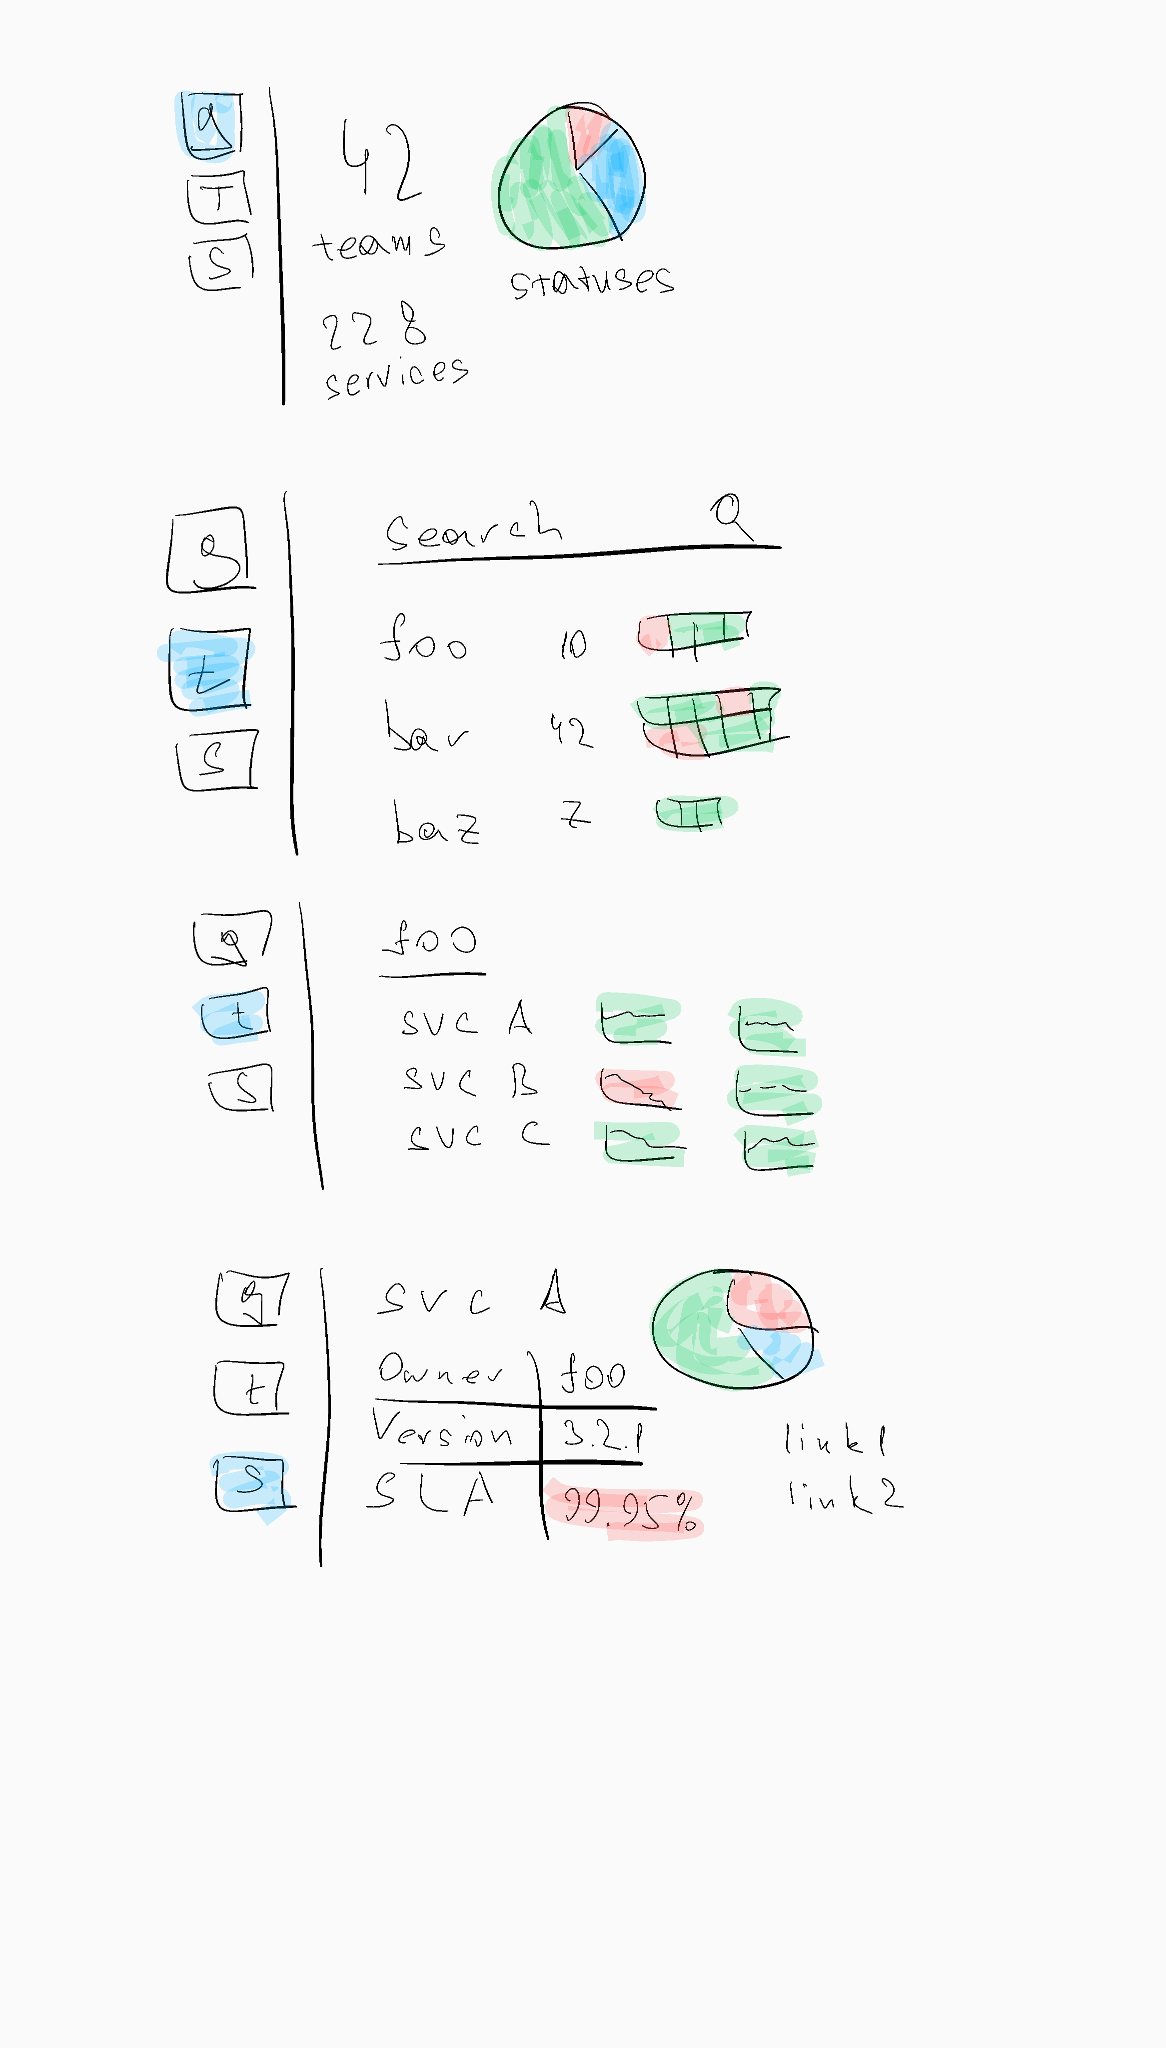 g
T
S
42
teams
228
services
statuses
g
t
S
Search
foo 10
bar 42
baz 7
g
t
S
foo
svc A
svc B
svc C
g
t
S
svc A
Owner foo
Version 3.2.1
SLA 99.95%
link1
link2